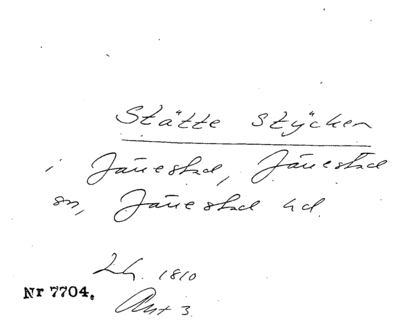 Stätte stycken
i Järrestad, Järrestad
sn, Järrestad hd.
1810
Nr 7704.
Akt 3.